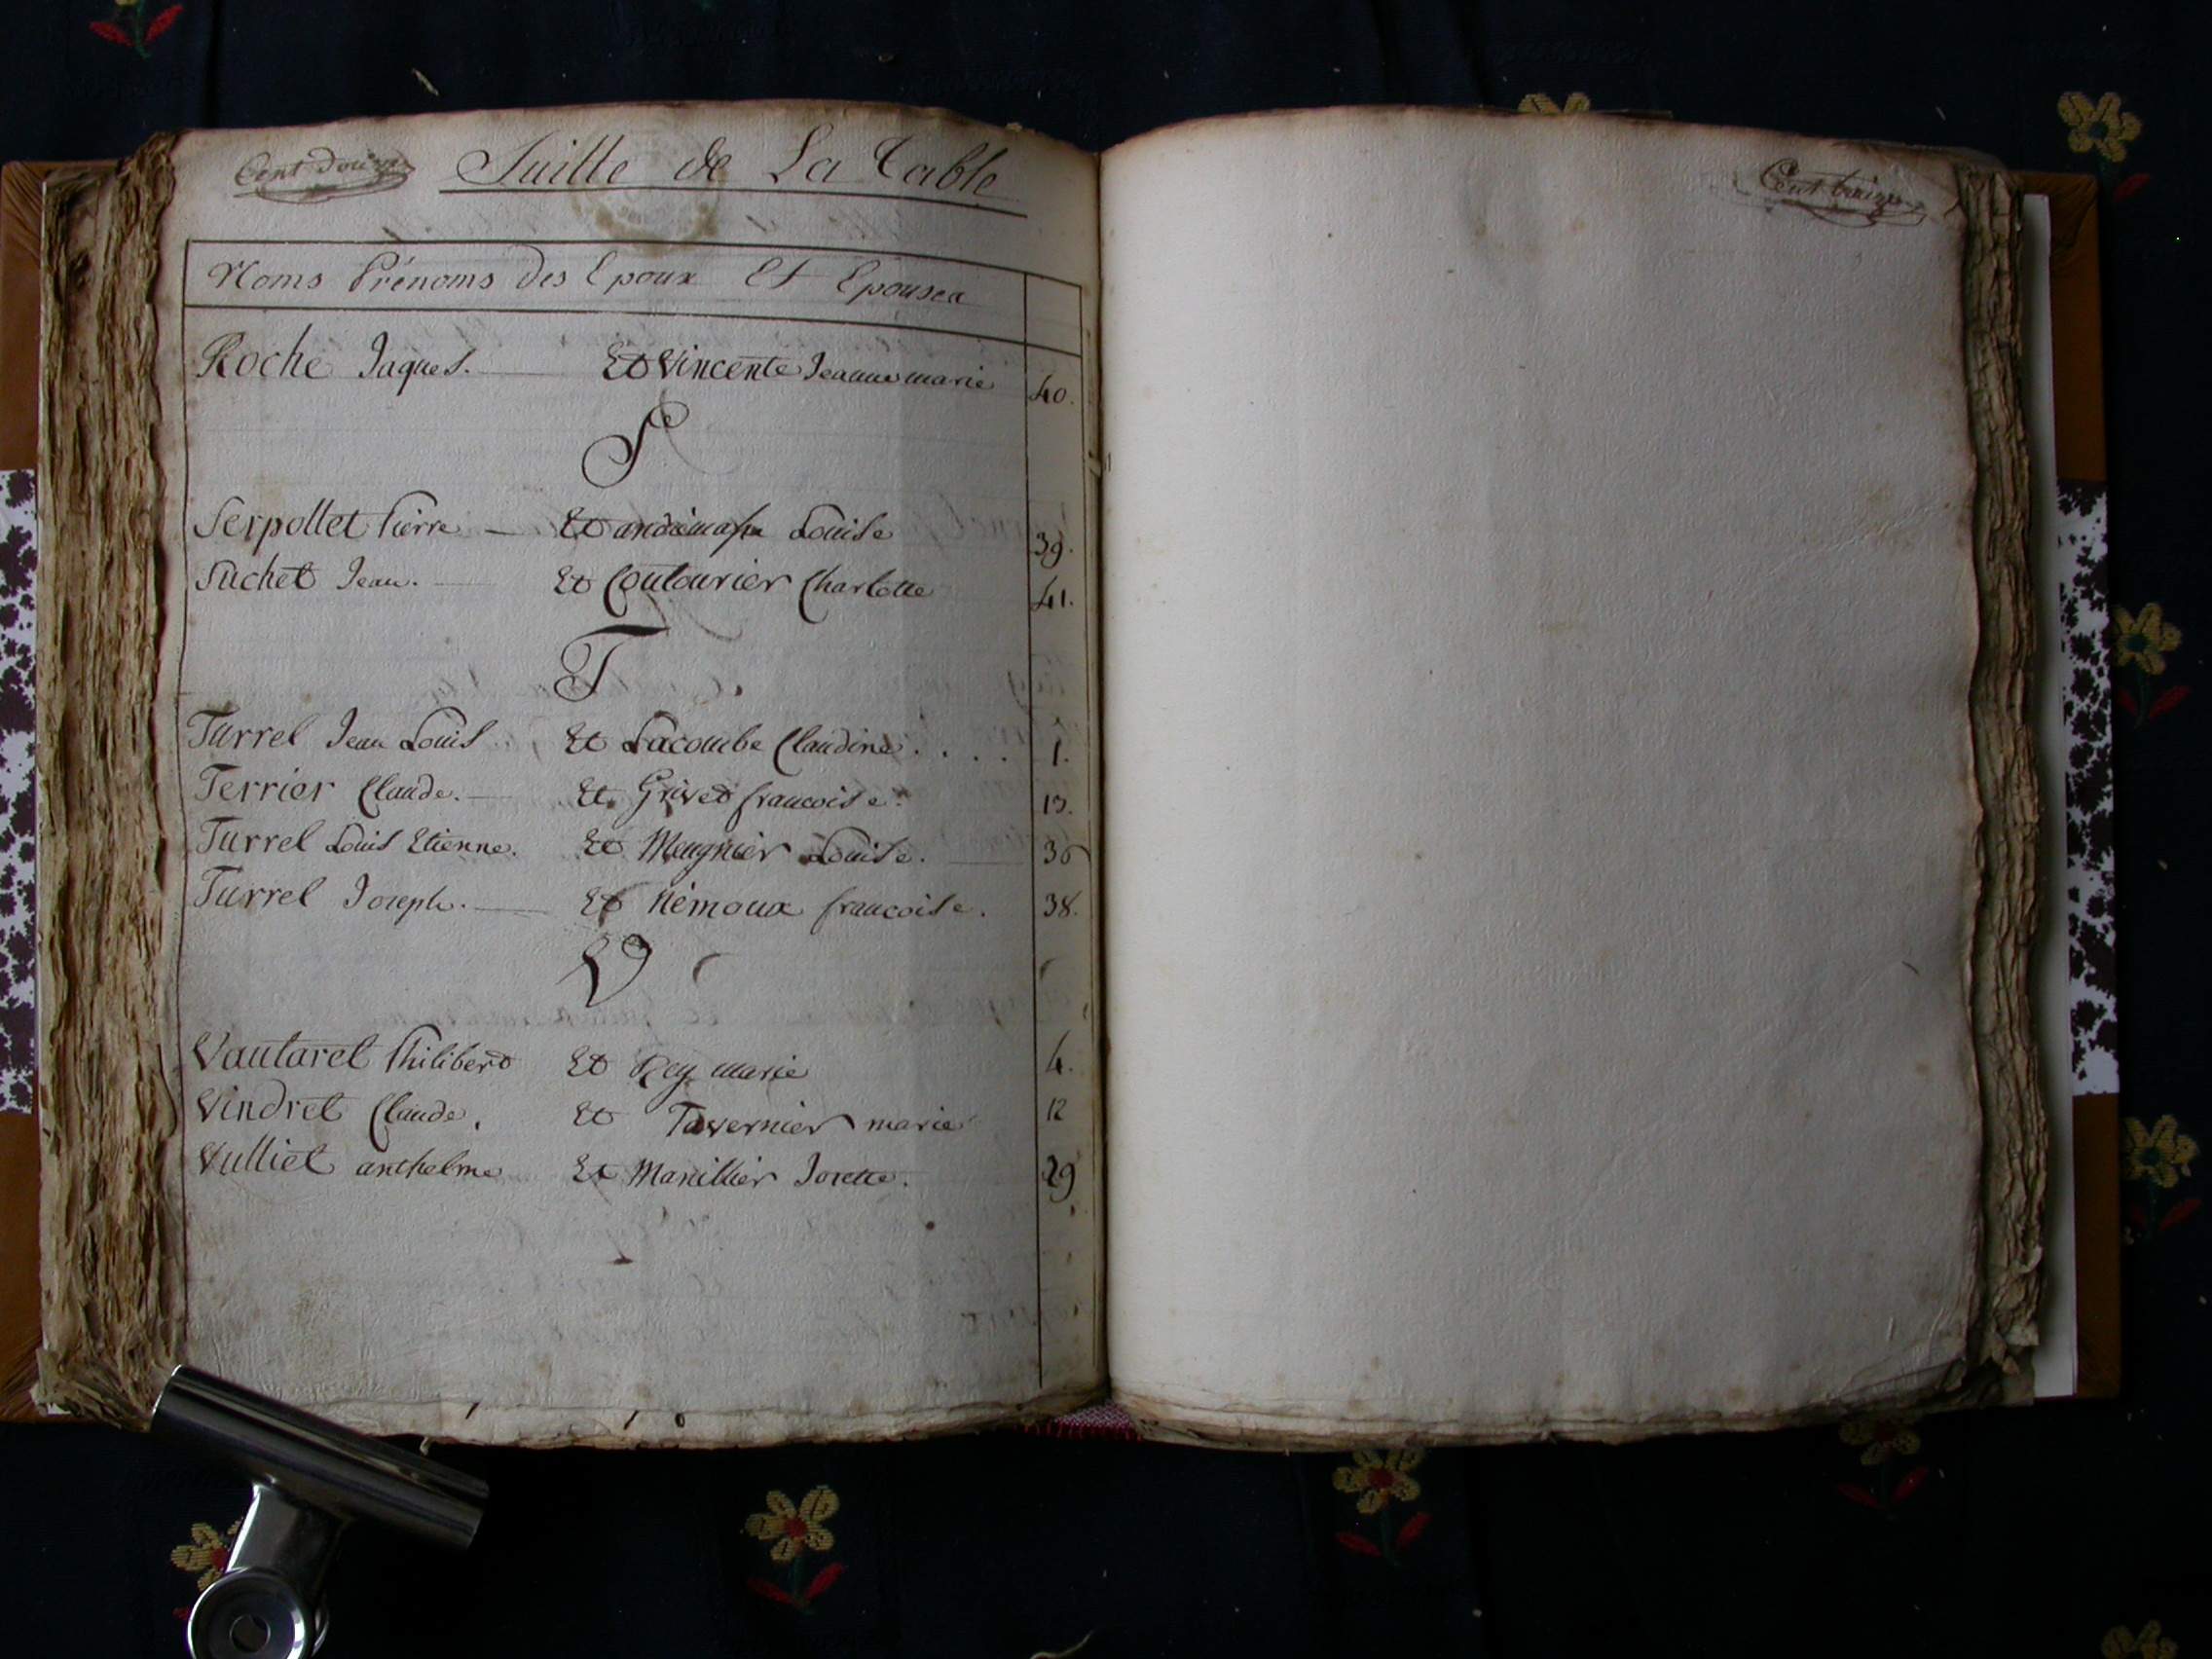 Cent Douze
Suitte de La Table
Noms Prénoms des Epoux Et Epouses
Roche Jaques. Et Vincente Jeanne marie 40.
S
Serpollet Pierre — Et Louise 39.
Suchet Jean. Et Coutourier Charlotte 41.
T
Turrel Jean Louis Et Lacombe Claudine . . . . 1.
Terrier Claude. Et Grivet francoise. 13.
Turrel Louis Etienne. Et Meugnier Louise. 36
Turrel Joseph. Et Némoux francoise. 38.
V
Vautaret Philibert Et Rey marie 4.
Vindret Claude, Et Tavernier marie 12
Vulliet anthelme Et Manillier Josette. 29
Cent treize